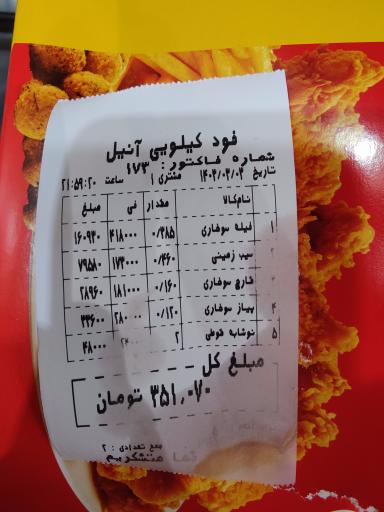 فود کیلویی آنیل
شماره فاکتور: ۱۷۳
تاریخ ۱۴۰۳/۰۳/۰۳ مشتری ۱ ساعت ۲۱:۵۹:۲۰
نام‌کالا مقدار فی مبلغ
۱ فیله سوخاری ۰/۳۸۵ ۴۱۸۰۰۰ ۱۶۰۹۳۰
سیب زمینی ۰/۴۶۰ ۱۷۳۰۰۰ ۷۹۵۸۰
قارچ سوخاری ۰/۱۶۰ ۱۸۱۰۰۰ ۲۸۹۶۰
۴ پیاز سوخاری ۰/۱۲۰ ۲۸۰۰۰۰ ۳۳۶۰۰
۵ نوشابه قوطی ۲ ۴۸۰۰۰
مبلغ کل
۳۵۱,۰۷۰ تومان
جمع تعدادی : ۲
متشکریم